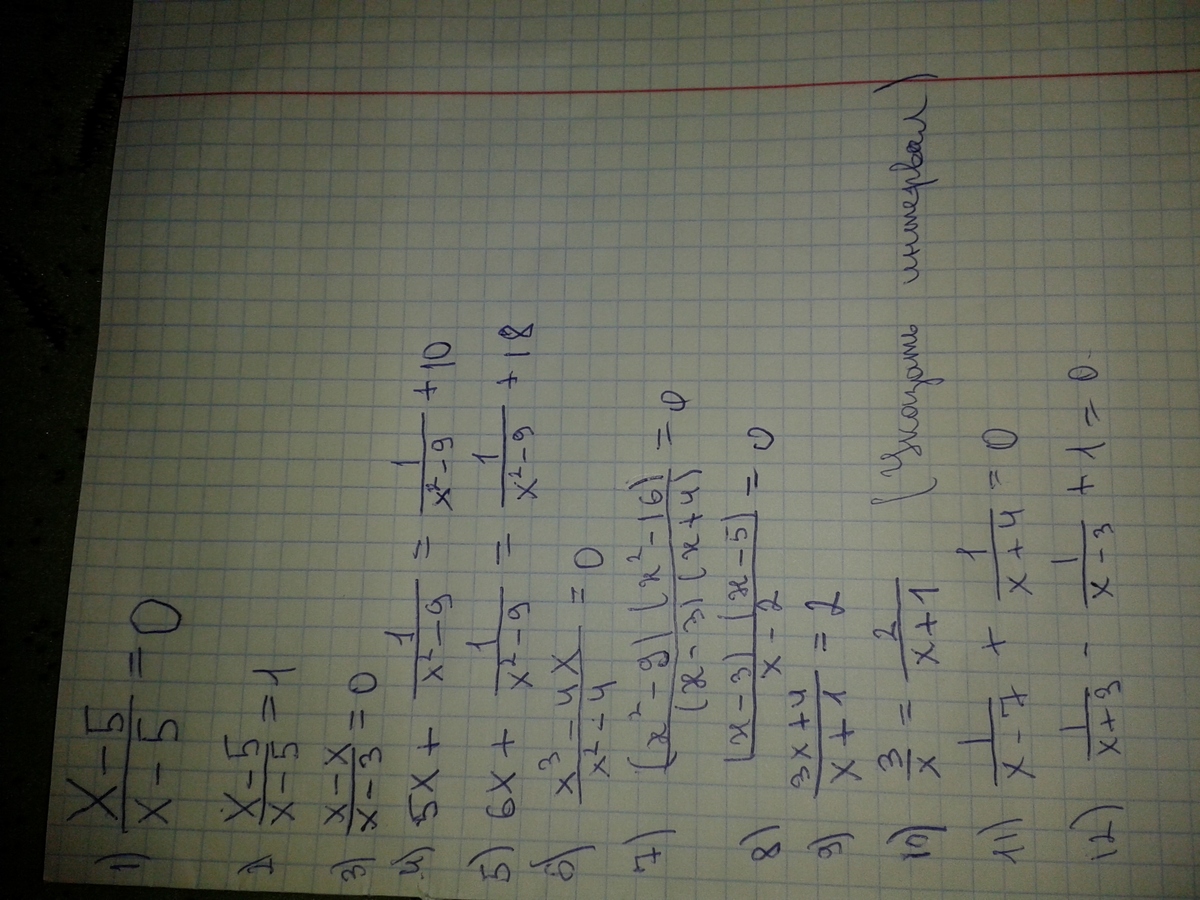 1) (x-5)/(x-5) = 0
2 (x-5)/(x-5) = 1
3) (x-x)/(x-3) = 0
4) 5x + 1/(x²-9) = 1/(x²-9) + 10
5) 6x + 1/(x²-9) = 1/(x²-9) + 18
6) (x³-4x)/(x²-4) = 0
7) ((x²-9)(x²-16))/((x-3)(x+4)) = 0
8) ((x-3)(x-5))/(x-2) = 0
9) (3x+4)/(x+1) = 2
10) 3/x = 2/(x+1) (Указать интервал)
11) 1/(x-7) + 1/(x+4) = 0
12) 1/(x+3) - 1/(x-3) + 1 = 0.